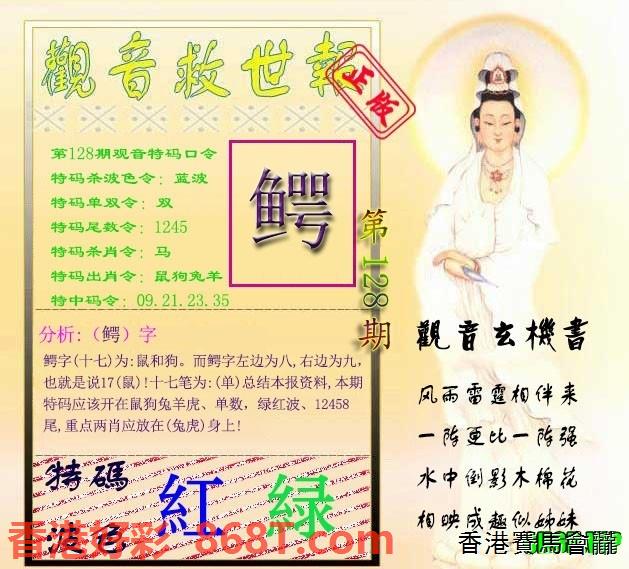 觀音救世報
正版
第128期观音特码口令
特码杀波色令：蓝波
特码单双令：双
特码尾数令：1245
特码杀肖令：马
特码出肖令：鼠狗兔羊
特中码令：09.21.23.35
鳄
第128期
分析:（鳄）字
鳄字(十七)为:鼠和狗。而鳄字左边为八,右边为九，
也就是说17(鼠)!十七笔为:(单)总结本报资料,本期
特码应该开在鼠狗兔羊虎、单数，绿红波、12458
尾,重点两肖应放在(兔虎)身上!
特碼
波色
紅 緑
觀音玄機書
风雨雷霆相伴来
一阵更比一阵强
水中倒影木棉花
相映成趣似姊妹
香港好彩 868T.com
香港賽馬會